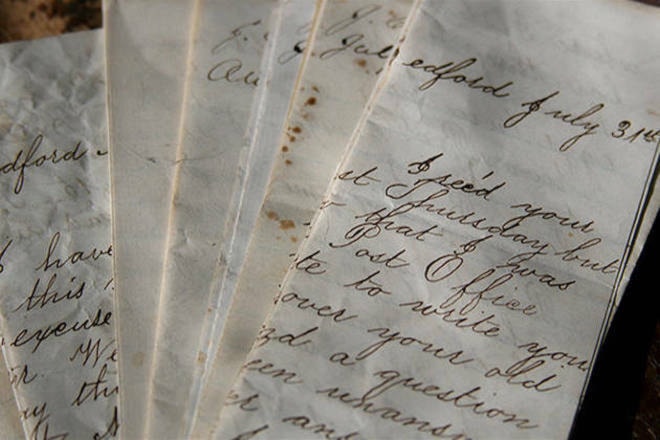 dford
I have
this
excuse
r. We
y th
J.
Au
J.
Jul
edford July 31st
I rec'd your
st Thursday but
r that I was
Post Office
te to write you
over your old
nd a question
een unansw